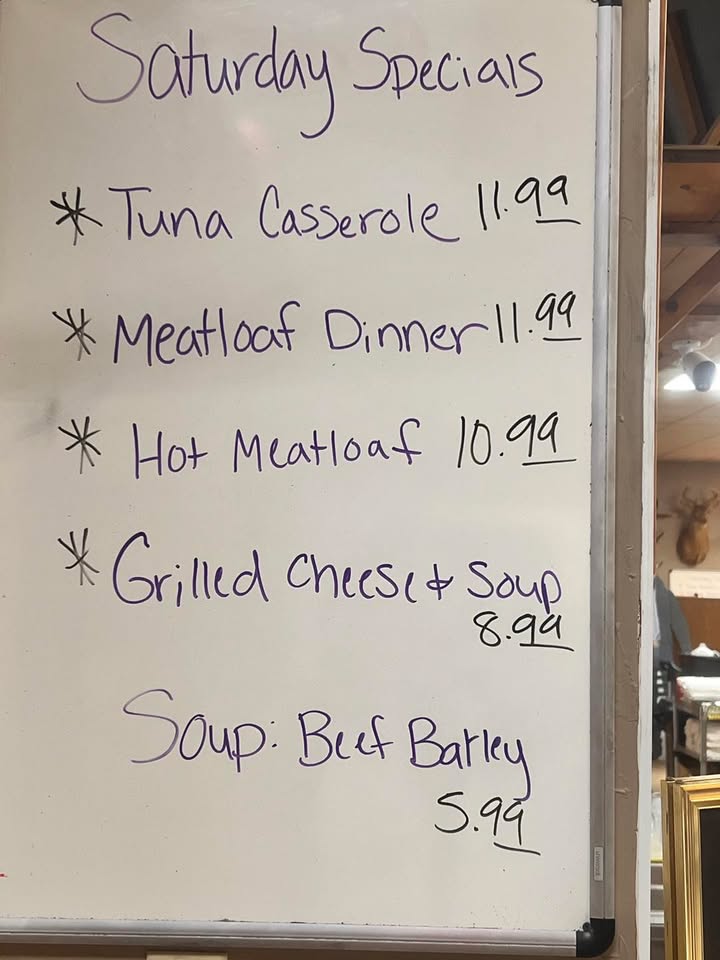 Saturday Specials
* Tuna Casserole 11.99
* Meatloaf Dinner 11.99
* Hot Meatloaf 10.99
* Grilled Cheese & Soup
8.99
Soup: Beef Barley
5.99